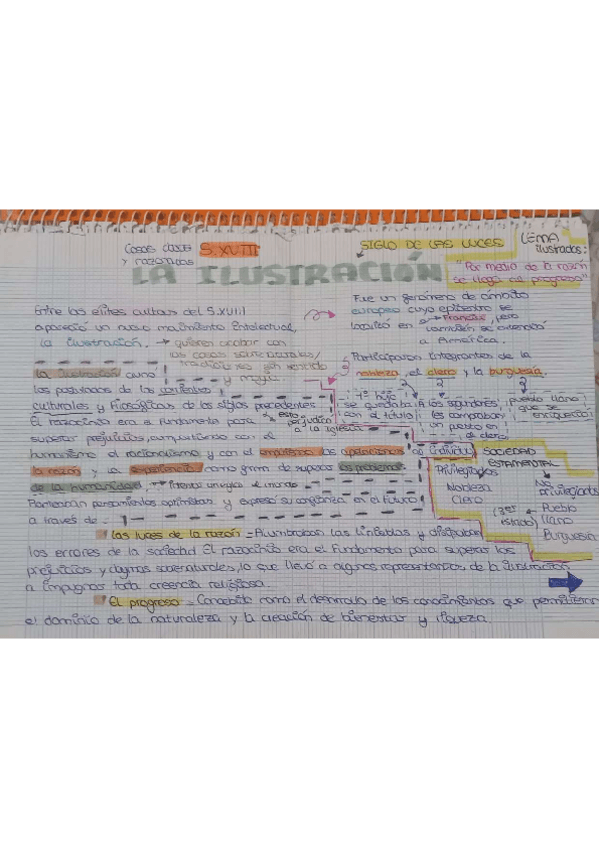 cosas claras
y razonadas
S.XVIII
SIGLO DE LAS LUCES
LEMA
ilustrados:
LA ILUSTRACIÓN
"Por medio de la razón
se llega al progreso"
Entre las élites cultas del S.XVIII
apareció un nuevo movimiento intelectual,
la ilustración.
quieren acabar con
las cosas sobrenaturales/
tradiciones sin sentido
y magia
Fue un fenómeno de ámbito
europeo cuyo epicentro se
localizó en Francia, pero
también se extendió
a América.
Participaron integrantes de la
nobleza, el clero y la burguesía.
1º hijo
se quedaba
con el título
A los segundones
les compraban
un puesto en
el clero
pueblo llano
que se
enriqueció
La Ilustración
los postulados de las corrientes
culturales y filosóficas de los siglos precedentes.
El raciocinio era el fundamento para
superar prejuicios, con el
esto
perjudicó
a la iglesia
humanismo el racionalismo y con el empirismo las del individuo
la razón y la experiencia como
de la humanidad.
intenta el mundo
pensamientos optimistas y expresó su confianza en el futuro
a través de
SOCIEDAD
ESTAMENTAL
Privilegiados
Nobleza
Clero
No
Privilegiados
(3er
estado)
Pueblo
llano
Burguesía
Las luces de la razón = Alumbraban las tinieblas y disipaban
los errores de la sociedad. El raciocinio era el fundamento para superar los
prejuicios y dogmas sobrenaturales, lo que llevó a algunos representantes de la ilustración
a impugnar toda creencia religiosa.
El progreso = Concebido como el desarrollo de los conocimientos que permitieran
el dominio de la naturaleza y la creación de bienestar y riqueza.